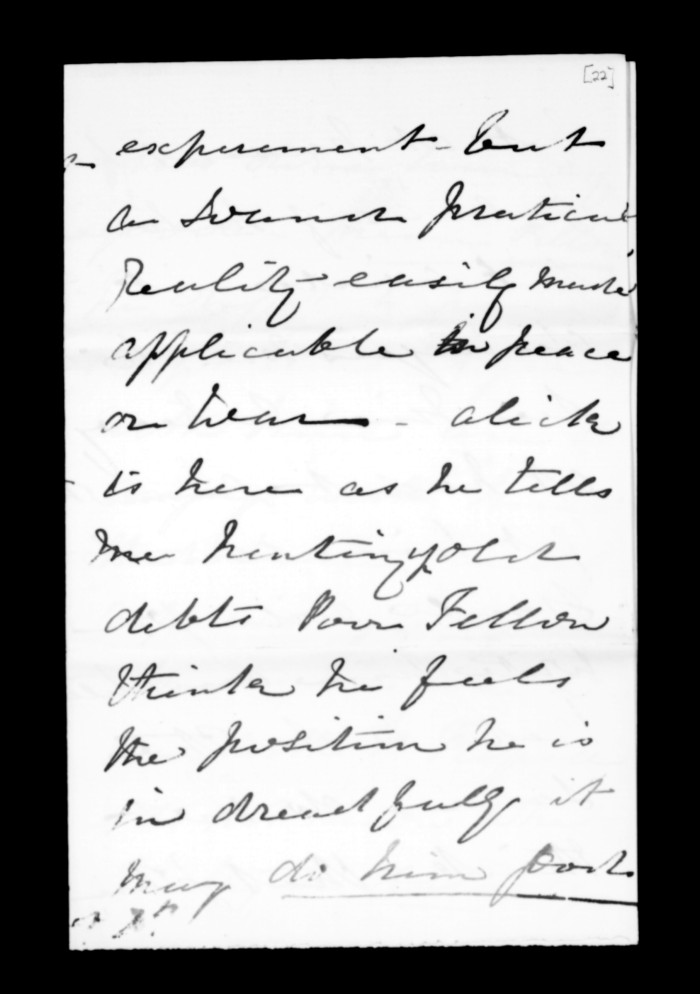 [22]
experiment - but
a Sound pratical
reality easily made
applicable in peace
or War - alick
is here as he tells
me hunting up old
debts Poor Fellow
think he feels
the position he is
in dreadfully it
may do him good